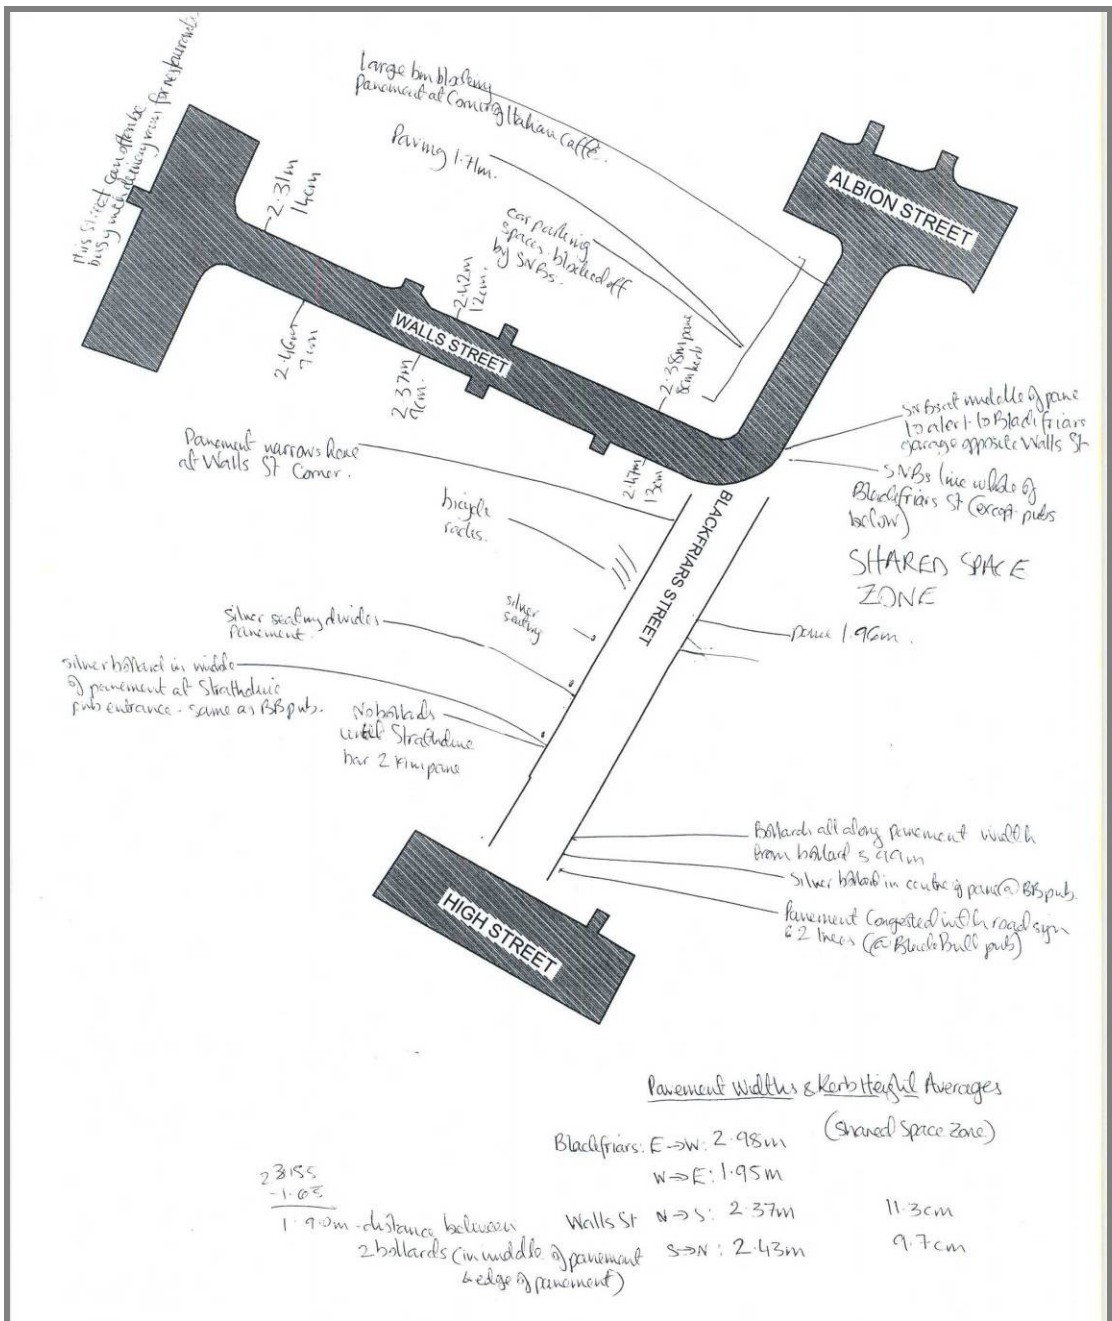 This street can often be
busy
Large bin blocking
pavement at Corner of Italian Caffe.
Paving 1.71m.
car parking
spaces blocked off
by SNBs.
ALBION STREET
2.31m
14cm
2.42m
12cm.
WALLS STREET
2.46m
9cm
2.37m
9cm.
2.38m pave
8cm kerb
2.47m
13cm
SNBs at middle of pave
to alert to Blackfriars
garage opposite Walls St
SNBs line whole of
Blackfriars St (except pubs
below)
SHARED SPACE
ZONE
Pavement narrows here
at Walls St Corner.
bicycle
racks.
BLACKFRIARS STREET
silver
seating
Silver seating divides
pavement.
pave 1.96m.
silver bollard in middle
of pavement at
pub entrance - same as BB pub.
No bollards
until
bar 2
Bollards all along pavement width
from bollard
Silver bollard in centre of pave @ BB pub.
Pavement Congested with road sign
& 2 trees (@ Black Bull pub)
HIGH STREET
Pavement Widths & Kerb Height Averages
(Shared Space Zone)
Blackfriars: E→W: 2.98m
W→E: 1.95m
Walls St N→S: 2.37m 11.3cm
S→N: 2.43m 9.7cm
1.90m - distance between
2 bollards (in middle of pavement
& edge of pavement)